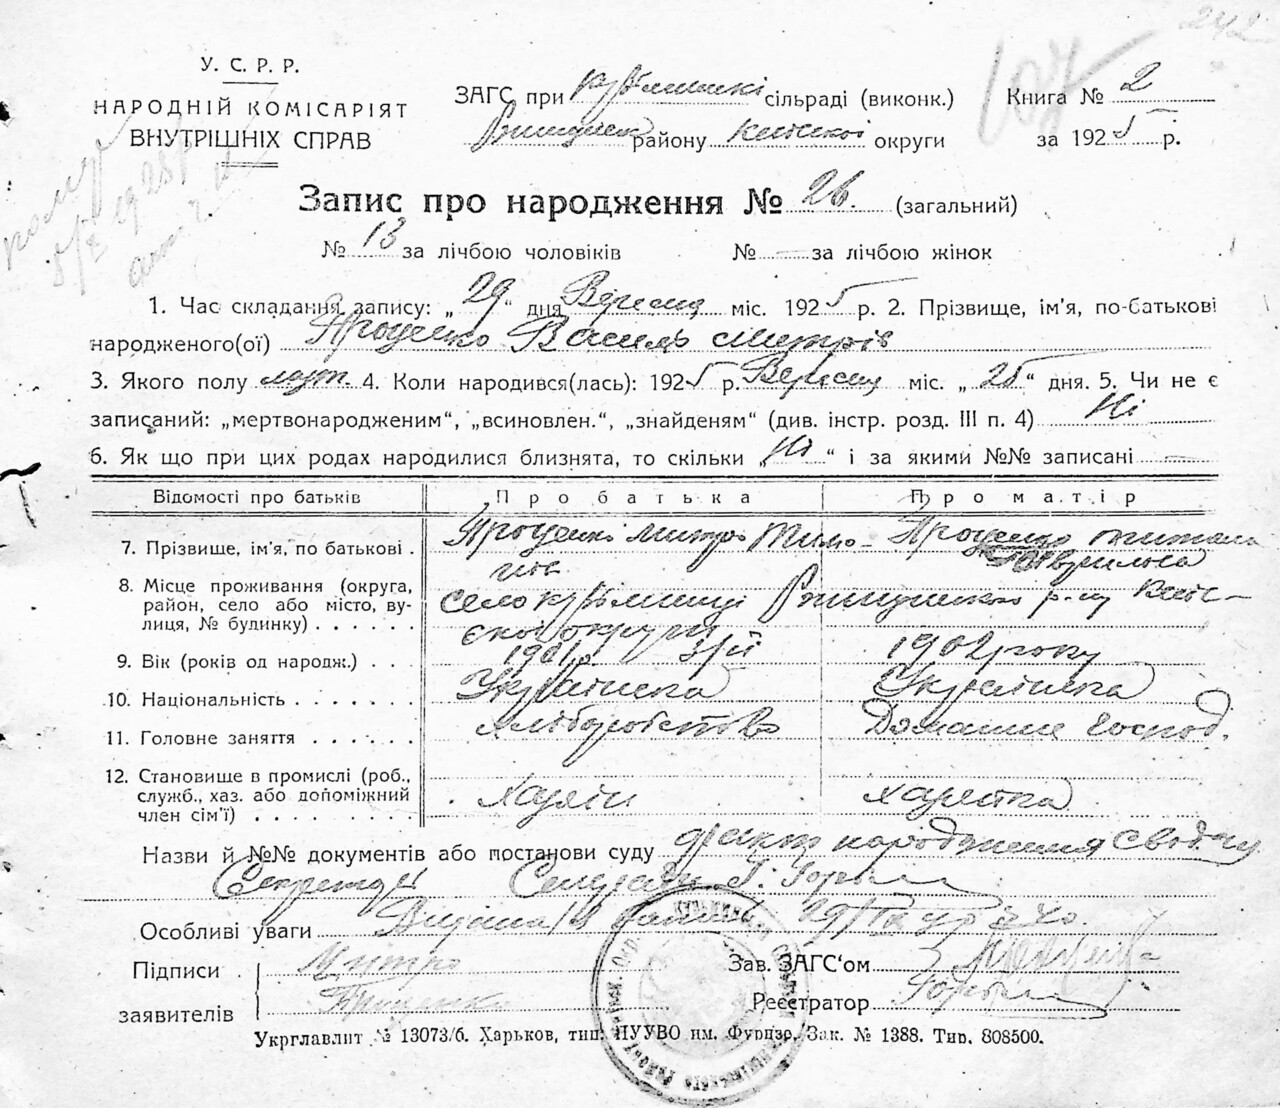 242
У. С. Р. Р.
НАРОДНІЙ КОМІСАРІЯТ
ВНУТРІШНІХ СПРАВ
107
ЗАГС при сільраді (виконк.)
району Київської округи
Книга № 2
за 1925 р.
Запис про народження № 26. (загальний)
№ 13 за лічбою чоловіків № — за лічбою жінок
1. Час складання запису: „29“ дня Вересня міс. 1925 р. 2. Прізвище, ім'я, по-батькові
народженого(ої) Проценко Василь Митрів
3. Якого полу муж. 4. Коли народився(лась): 1925 р. Вересня міс. „25“ дня. 5. Чи не є
записаний: „мертвонародженим“, „всиновлен.“, „знайденям“ (див. інстр. розд. III п. 4) Ні
6. Як що при цих родах народилися близнята, то скільки „Ні“ і за якими №№ записані —
Відомості про батьків Про батька Про матір
7. Прізвище, ім'я, по батькові . Митро Тимо- Проценко
Гаврилова
8. Місце проживання (округа,
район, село або місто, ву-
лиця, № будинку) . . . . . . село р-ну Київ-
ської округи
9. Вік (років од народж.) . . . 1901 1902 року
10. Національність . . . . . . . Українська Українська
11. Головне заняття . . . . . . хліборобство Домашнє господ.
12. Становище в промислі (роб.,
служб., хаз. або допоміжний
член сім'ї) . . . . . . . . . Хазяїн хазяйка
Назви й №№ документів або постанови суду факт народження
Секретар Сільради Г.
Особливі уваги
Підписи
заявителів
Митро
Проценко
Зав. ЗАГС'ом
Реєстратор
Укрглавлит № 13073/б. Харьков, тип. ПУУВО им. Фрунзе. Зак. № 1388. Тир. 808500.